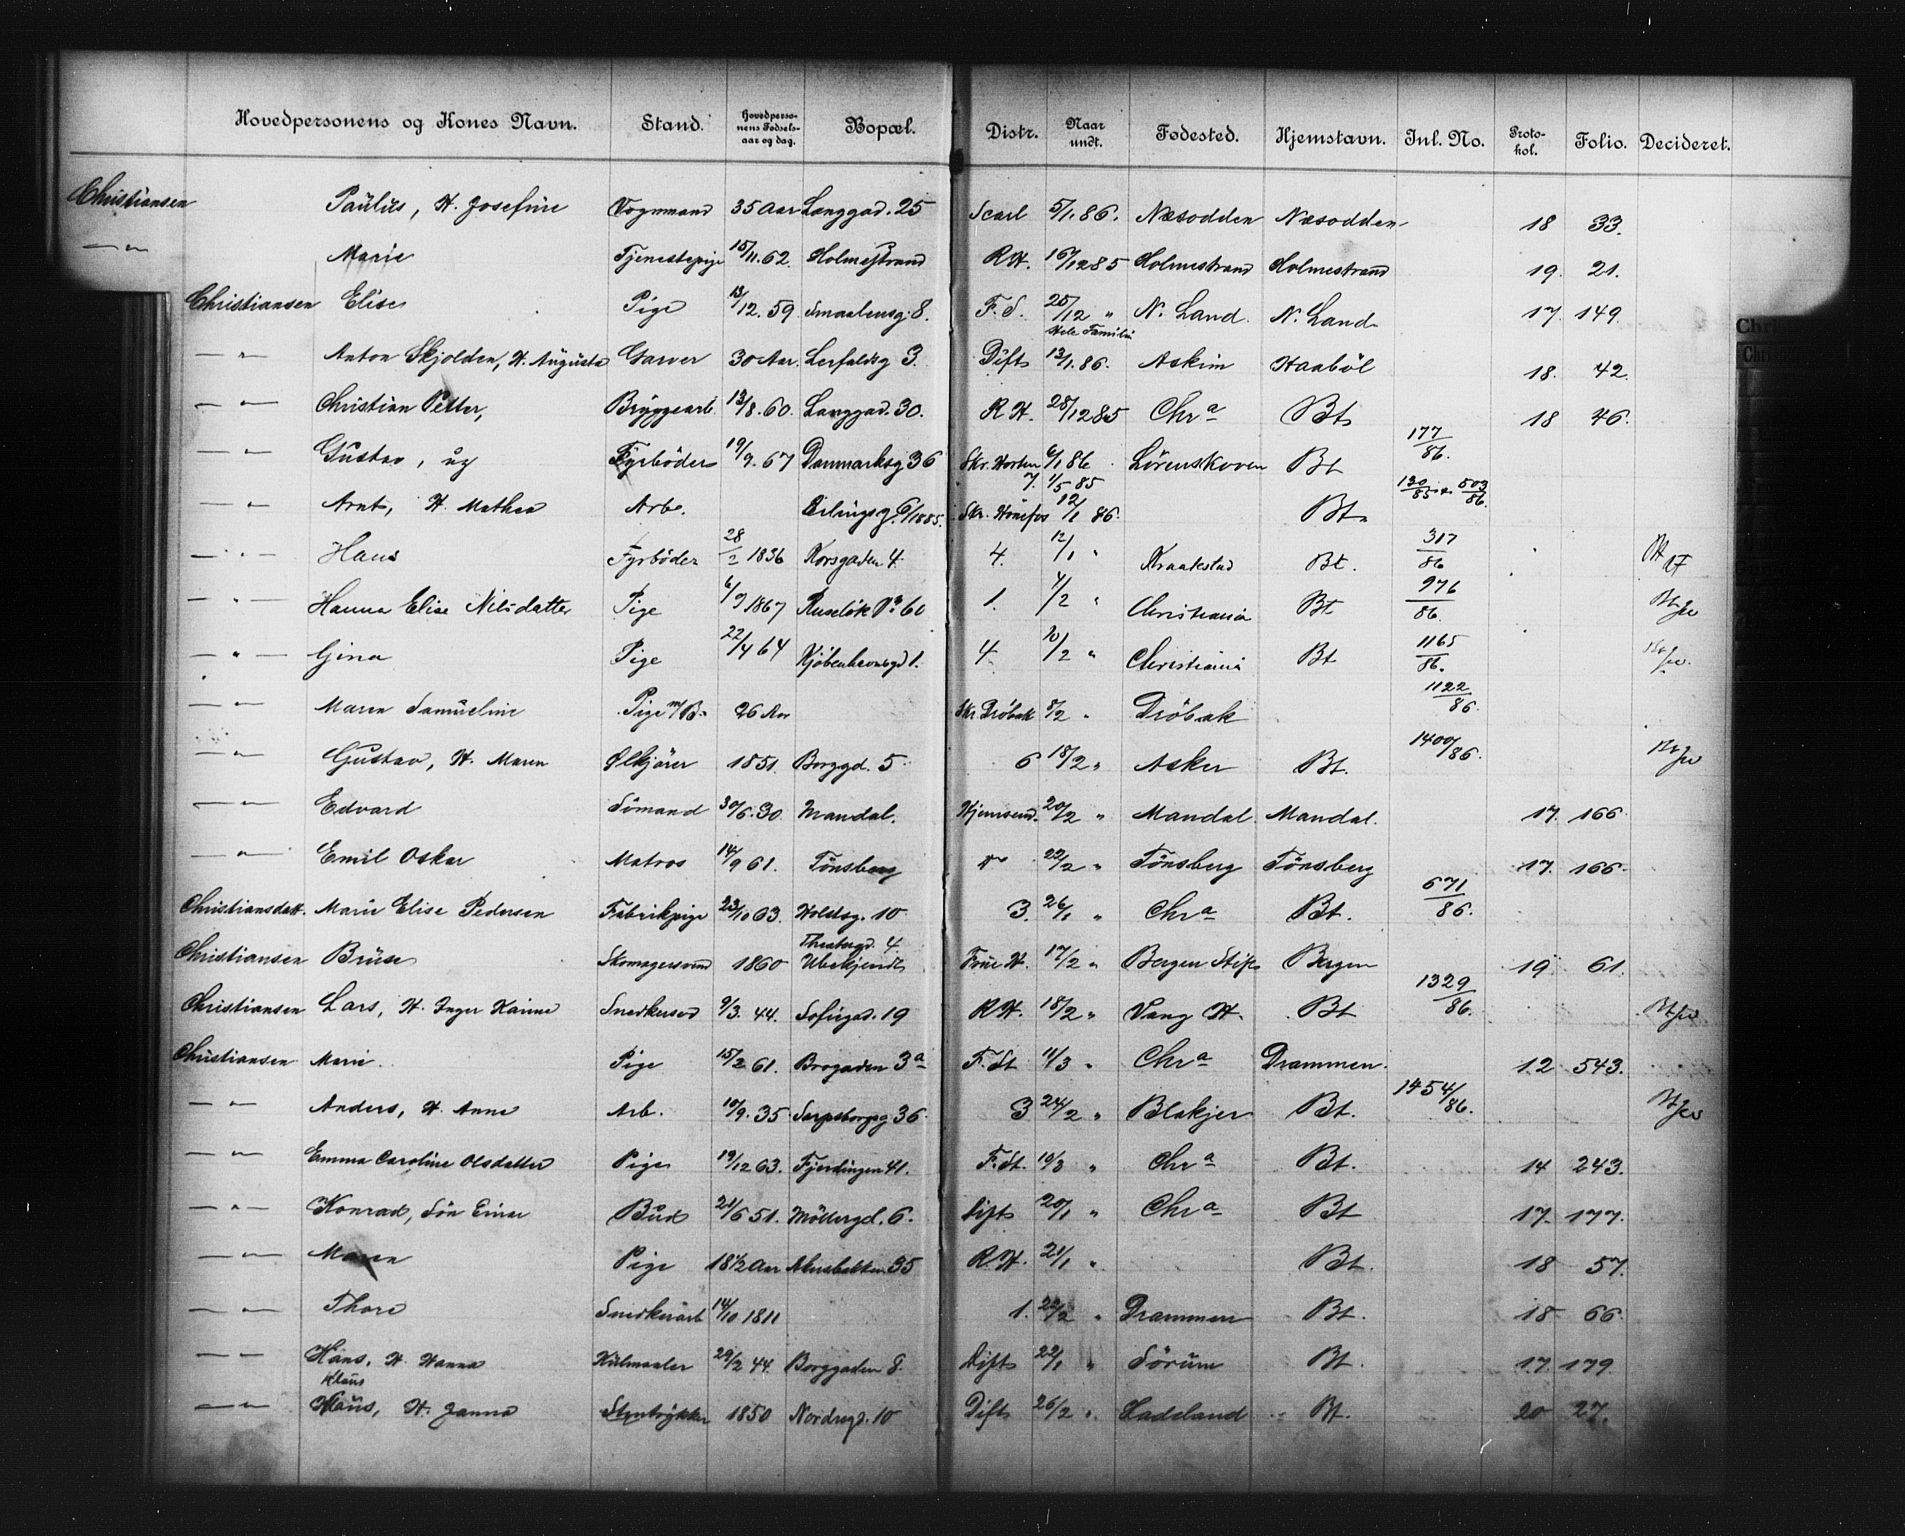 Hovedpersonens og Kones Navn. Stand. Hovedpersonens Fødselsaar og dag. Bopæl. Distr. Naar undt. Fødested. Hjemstavn. Inl. No. Protokol. Folio. Decideret.
Christiansen Paulus, H. Josefine Vognmand 35 Aar Langgad. 25 5/1. 86. Næsodden Næsodden 18 33.
— " — Marie Tjenestepige 15/11. 62. Holmestrand R.H. 16/12 85 Holmestrand Holmestrand 19. 21.
Christiansen Elise Pige 13/12. 59 Smaalensg. 8. F. S. 25/12 " N. Land. N. Land 17. 149.
Hele Familie
— " — Anton Skjolden, H. Augusta Garver 30 Aar. Lerfaldsg 3. Difts 13/1. 86. Askim Haabøl 18. 42.
— " — Christian Petter, Bryggearb. 13/8. 60. Langgad. 30. R.H. 28/12 85 Chra Bt 18 46.
— " — Gustav, ug Fyrbøder 19/9. 67 Danmarksg 36 Skr. Horten 6/1 86 Lørenskoven Bt 177/86.
7. 1/5 85
— " — Arnt, H. Mathea Arb. 6/1885. Skr. Hønefos 12/1 86. Bt. 130/85 503/86.
— " — Hans Fyrbøder 28/2 1836 Korsgaden 4. 4. 12/1 " Kraakstad Bt. 317/86
— " — Hanna Elise Nilsdatter Pige 6/9 1867 60 1. 4/2 " Christiania Bt 976/86.
— " — Gina Pige 22/4 64 Kjøbenhavnsgd 1. 4. 10/2 " Christiania Bt 1165/86.
— " — Maren Samueline Pige m/B. 26 Aar Skr Drøbak 8/2 " Drøbak 1122/86.
— " — Gustav, H. Maren Ølkjører 1851. Borggd. 5 6 18/2 " Asker Bt. 1400/86.
— " — Edvard Sømand 30/6. 30. Mandal. Hjemsend. 20/2 " Mandal. Mandal. 17. 166.
— " — Emil Oskar Matros 14/9 61. Tønsberg 22/2 " Tønsberg Tønsberg 17. 166.
Christiansdatt. Marie Elise Pedersen Fabrikpige 23/10 63. Holdtsg. 10 3. 26/1 " Chra Bt. 671/86.
Theatergd. 4
Christiansen Skomagersvend 1860 Ubekjendt Frue H. 17/2 " Bergen Stift Bergen 19 61.
Christiansen Lars, H. Inger Karine Snedkersvd 9/3. 44. Sofiegad. 19 R.H. 18/2 " Vang H. Bt 1329/86.
Christiansen Marie. Pige 15/2 61. Brogaden 3a F. St 11/3 " Chra Drammen. 12 543.
— " — Anders, H. Anne Arb. 10/9. 35 Sarpsborgsg 36. 3 24/2 " Blakjer Bt. 1454/86.
— " — Emma Caroline Olsdatter Pige 19/12 63. Fjerdingen 41. F. St. 10/3 " Chra Bt. 14 243.
— " — Konrad, Søn Einar Bud 21/6 51. Møllergd. 6. Difts 20/1 " Chra Bt 17. 177.
— " — Maren Pige 18 1/2 Aar Akersbakken 35 R.H. 21/1 " Bt. 18 57.
— " — Thore Snedkerarb 14/10 1811 1. 22/2 " Drammen Bt. 18 66.
— " — Hans, H. Hanna 29/2 44 Borggaden 8. Difts 22/1 " Sørum Bt. 17. 179.
Klaus
— " — Klaus, H. Janna Stentrykker 1850 Nordregd. 10 Difts 26/2 " Hadeland Bt. 20 27.